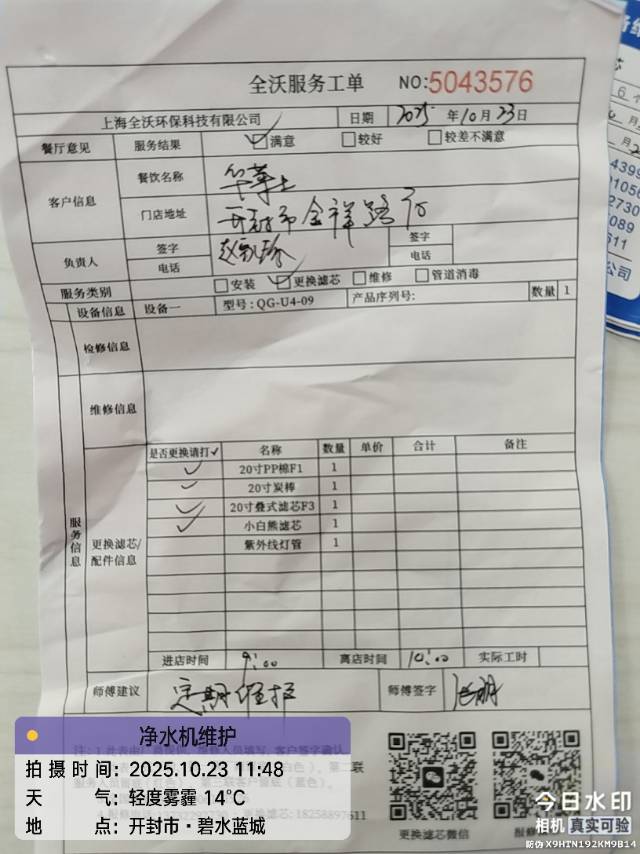 全沃服务工单 NO:5043576
上海全沃环保科技有限公司 日期 2025 年10月23日
餐厅意见 服务结果 满意 较好 较差不满意
客户信息 餐饮名称 华莱士
门店地址 开封市金祥路店
负责人 签字 签字
电话 电话
服务类别 安装 更换滤芯 维修 管道消毒
设备信息 设备一 型号:QG-U4-09 产品序列号: 数量 1
检修信息
维修信息
服务信息
更换滤芯/配件信息
是否更换请打✓ 名称 数量 单价 合计 备注
✓ 20寸PP棉F1 1
✓ 20寸炭棒 1
✓ 20寸叠式滤芯F3 1
✓ 小白熊滤芯 1
紫外线灯管 1
进店时间 9:00 离店时间 10:00 实际工时
师傅建议 定期维护 师傅签字
更换滤芯微信
净水机维护
拍摄时间:2025.10.23 11:48
天气:轻度雾霾 14℃
地点:开封市·碧水蓝城
18258897611
今日水印
相机 真实可验
防伪 X9HTN192KM9B14